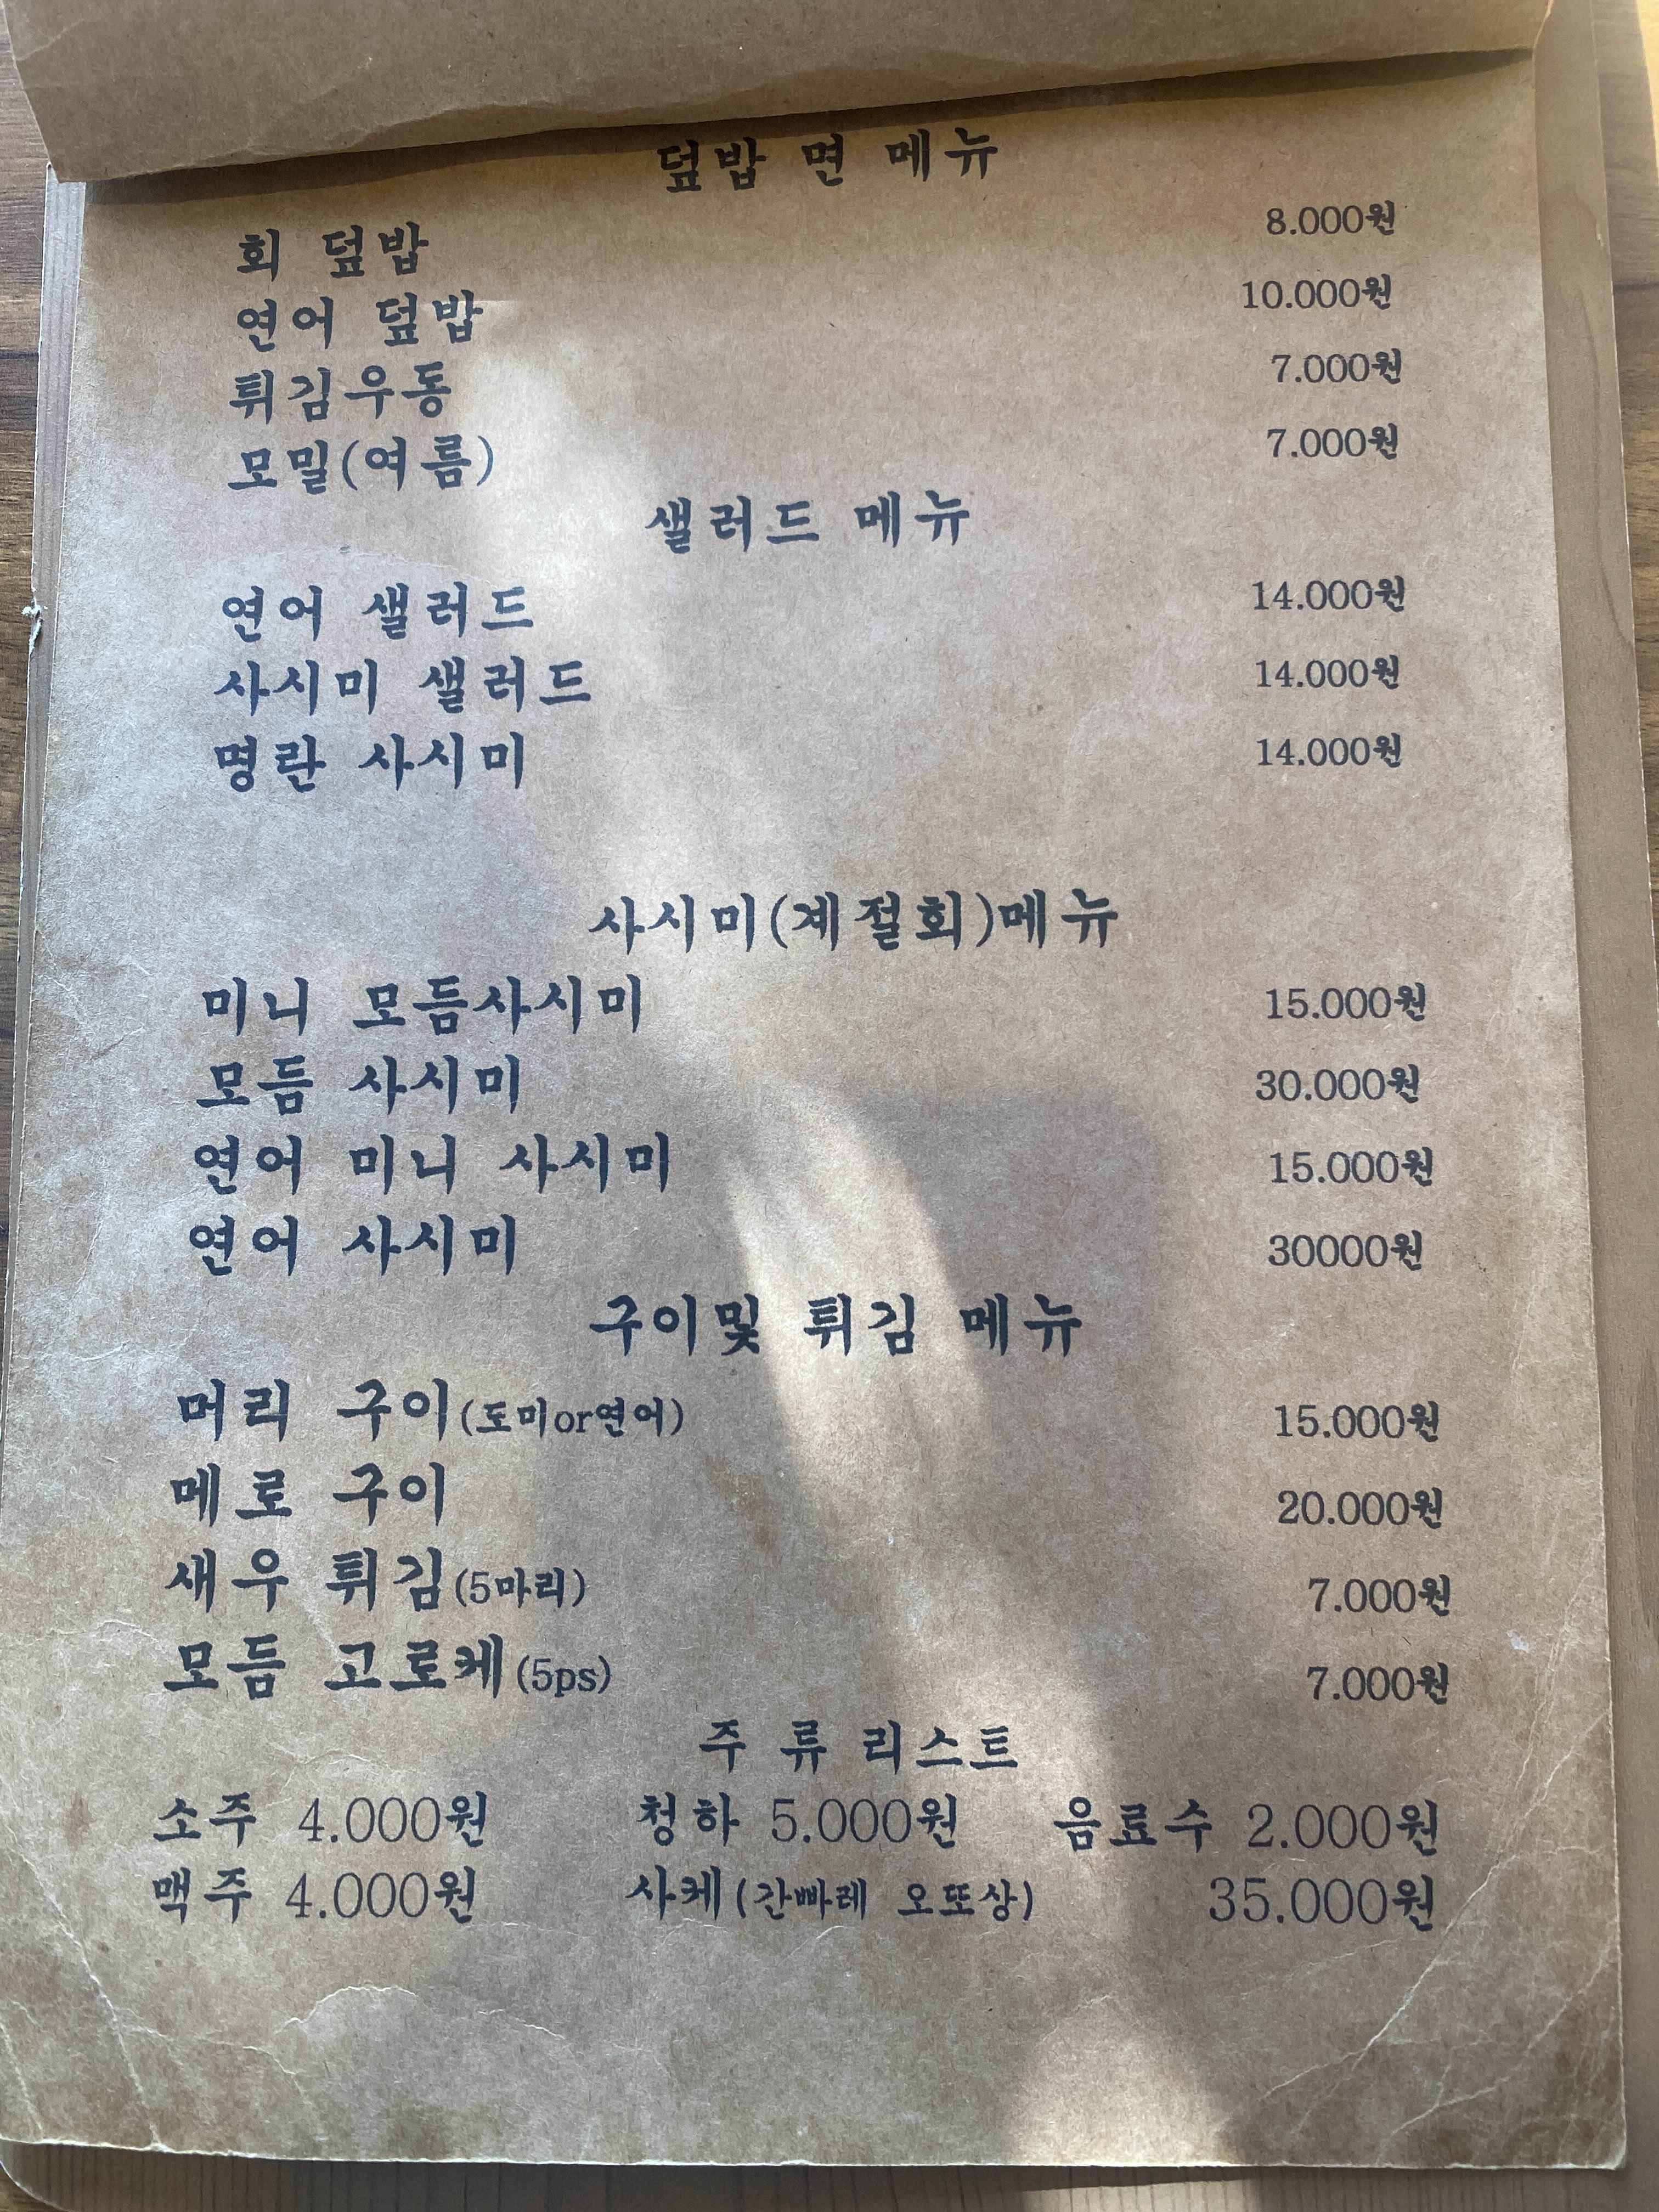 덮밥 면 메뉴
회 덮밥 8.000원
연어 덮밥 10.000원
튀김우동 7.000원
모밀(여름) 7.000원
샐러드 메뉴
연어 샐러드 14.000원
사시미 샐러드 14.000원
명란 사시미 14.000원
사시미(계절회)메뉴
미니 모듬사시미 15.000원
모듬 사시미 30.000원
연어 미니 사시미 15.000원
연어 사시미 30000원
구이및 튀김 메뉴
머리 구이(도미or연어) 15.000원
메로 구이 20.000원
새우 튀김(5마리) 7.000원
모듬 고로케(5ps) 7.000원
주 류 리스트
소주 4.000원 청하 5.000원 음료수 2.000원
맥주 4.000원 사케(간빠레 오또상) 35.000원